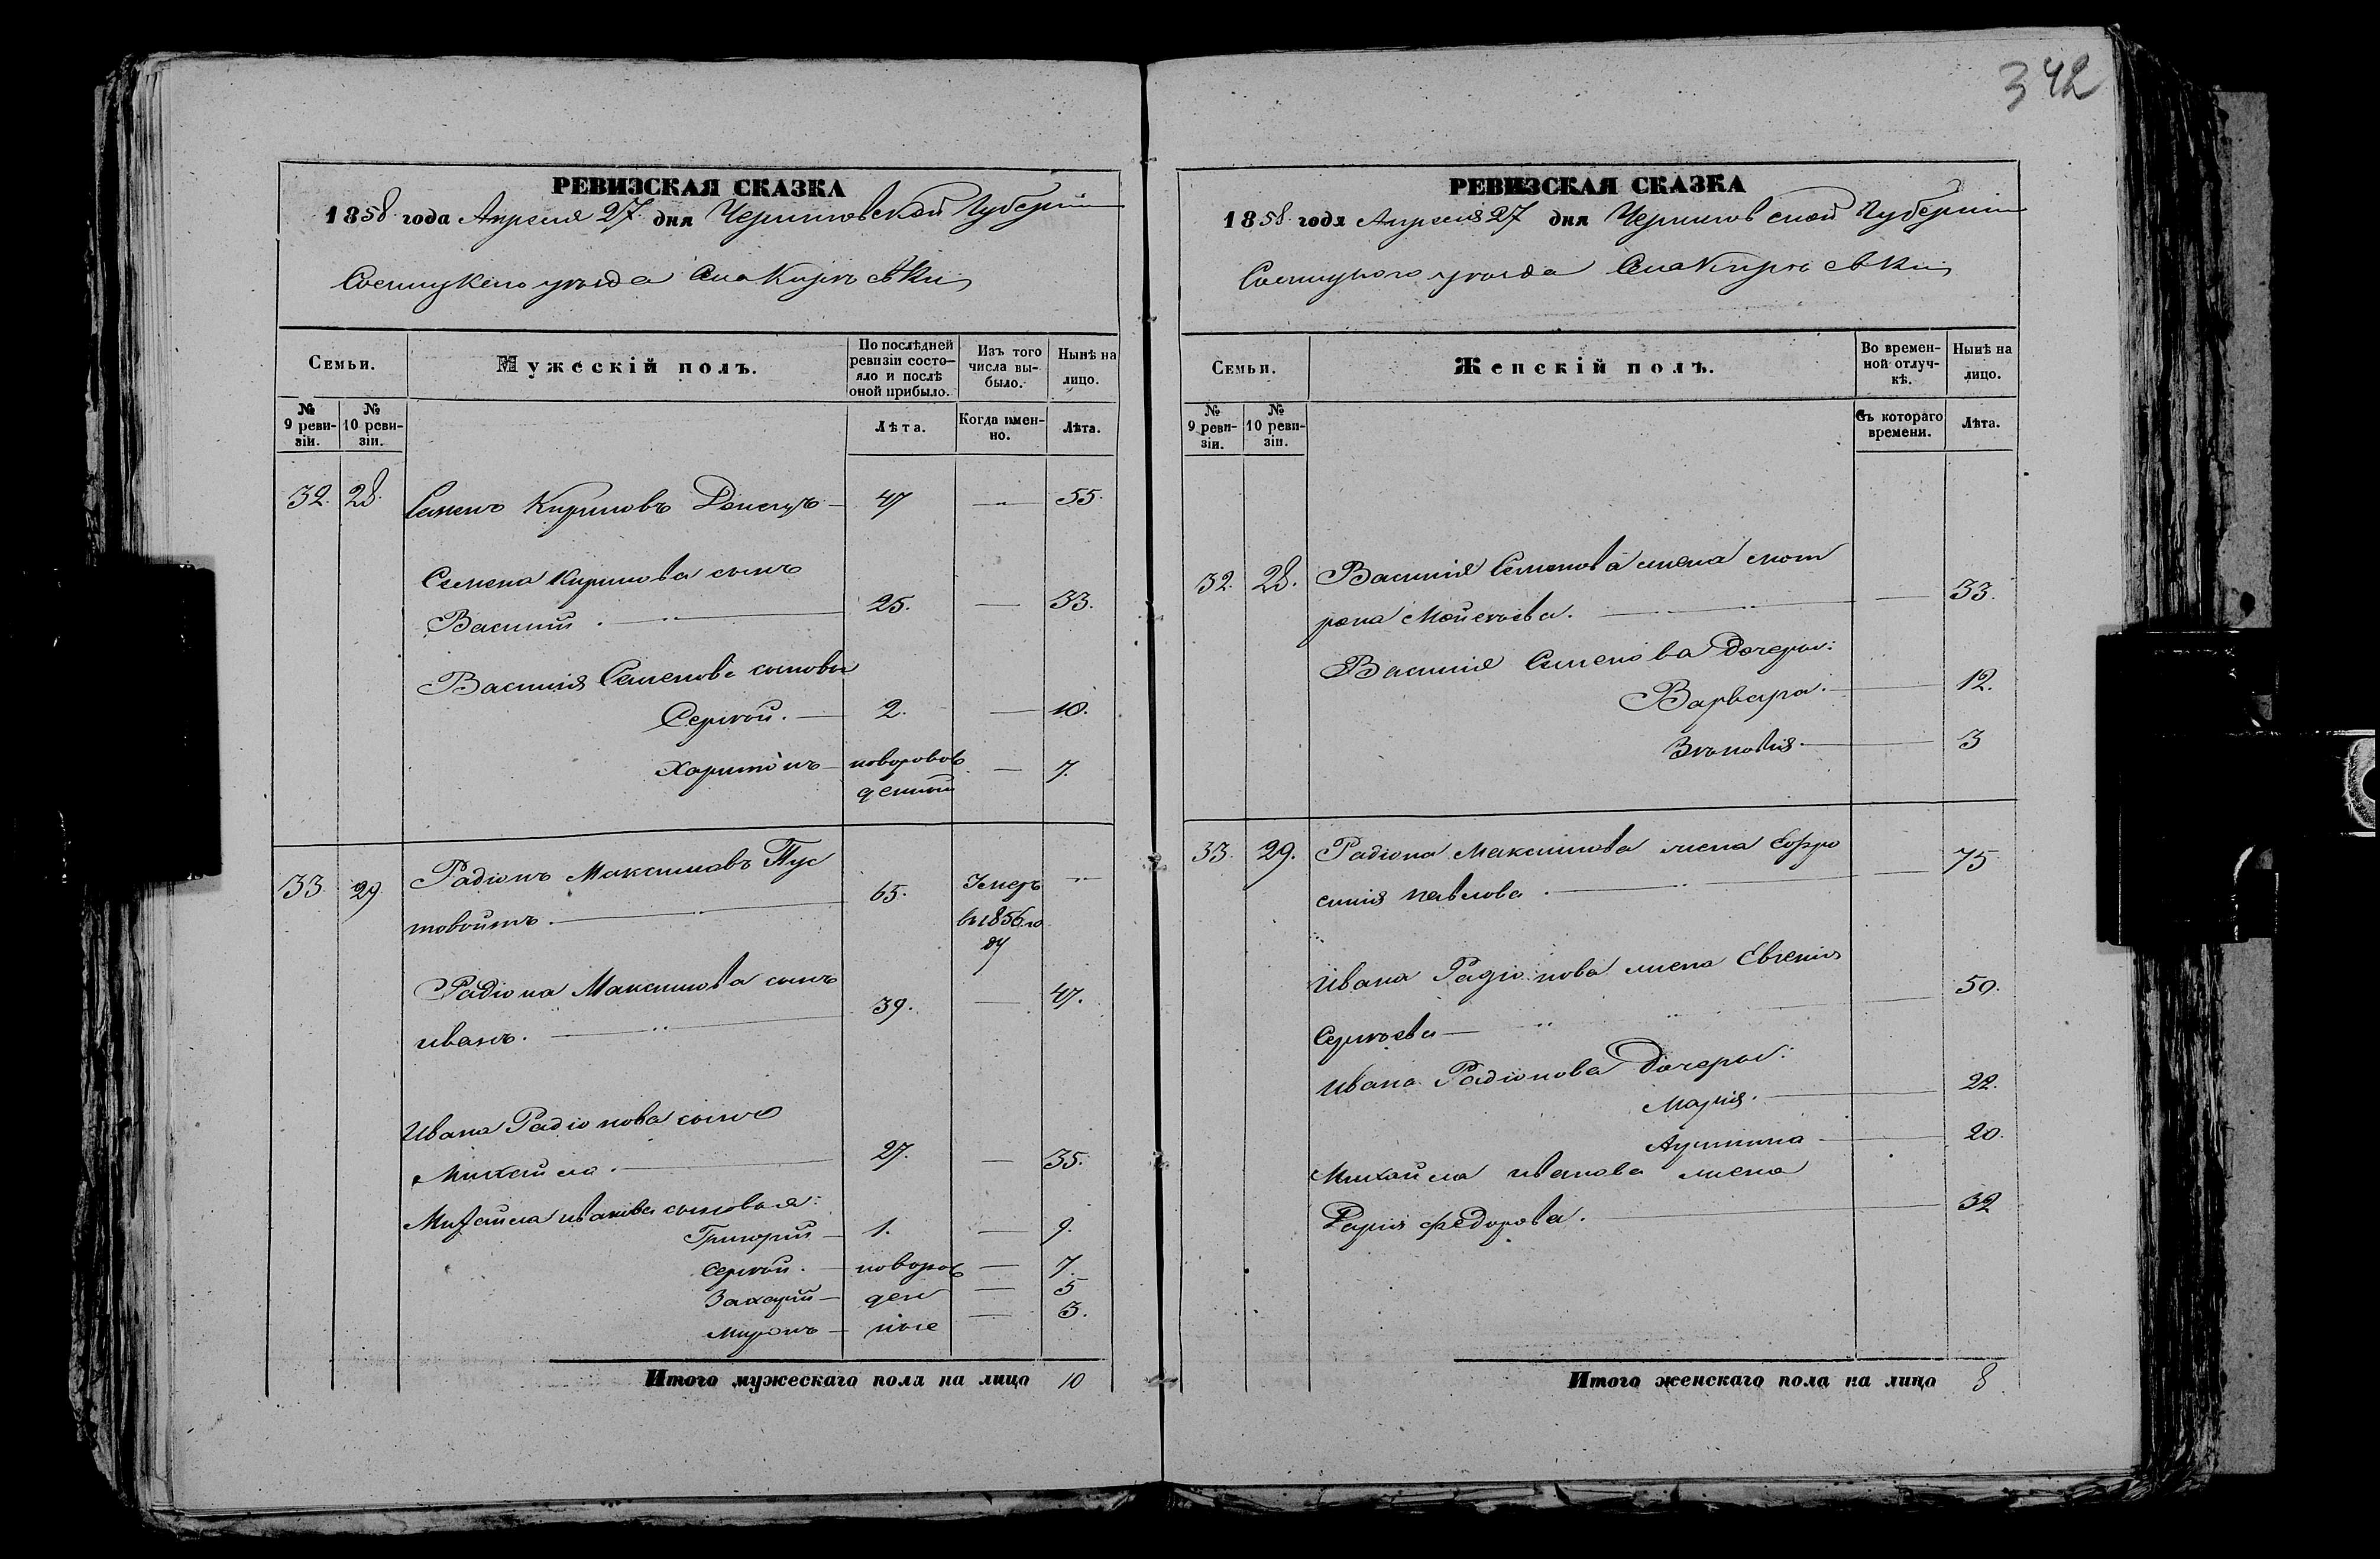 342
РЕВИЗСКАЯ СКАЗКА
1858 года Апреля 27 дня Черниговской Губерніи
Сосницкаго уѣзда Села Кирѣевки
Семьи.
Мужескій полъ.
По послѣдней ревизіи состо-
яло и послѣ оной прибыло.
Изъ того числа вы-
было.
Нынѣ на лицо.
№ 9 реви-
зіи.
№ 10 реви-
зіи.
Лѣта.
Когда имен-
но.
Лѣта.
32. 28. Семенъ Кириловъ Донецъ 47 — 55.
Семена Кирилова сынъ
Василий. 25. — 33.
Василия Семенова сыновья
Сергѣй. 2. — 10.
Харитонъ новорож
денный — 7.
33. 29. Радіонъ Максимовъ Пус
товойтъ. 65. Умеръ
въ 1856 го
ду
Радіона Максимова сынъ
иванъ. 39. — 47.
Ивана Радіонова сынъ
Михайла. 27. — 35.
Михайла иванова сыновья:
Григорий 1. — 9.
Сергѣй. новорож — 7.
Захарий ден — 5
Миронъ ные — 3.
Итого мужескаго пола на лицо 10
РЕВИЗСКАЯ СКАЗКА
1858 года Апреля 27 дня Черниговской Губерніи
Сосницкого уѣзда Села Кирѣевки
Семьи.
Женскій полъ.
Во времен-
ной отлуч-
кѣ.
Нынѣ на лицо.
№ 9 реви-
зіи.
№ 10 реви-
зіи.
Съ котораго времени.
Лѣта.
32. 28. Василия Семенова жена мот
рона Мойсѣева. — 33.
Василия Семенова дочеры:
Варвара. 12.
Зѣновия. 3
33. 29. Радіона Максимова жена Ефро
синия павлова — 75
Ивана Радіонова жена Евгения
Сергѣева — 50.
Ивана Радіонова дочеры:
Мария. 22.
20.
Михайла иванова жена
Дария федорова. 32
Итого женскаго пола на лицо 8